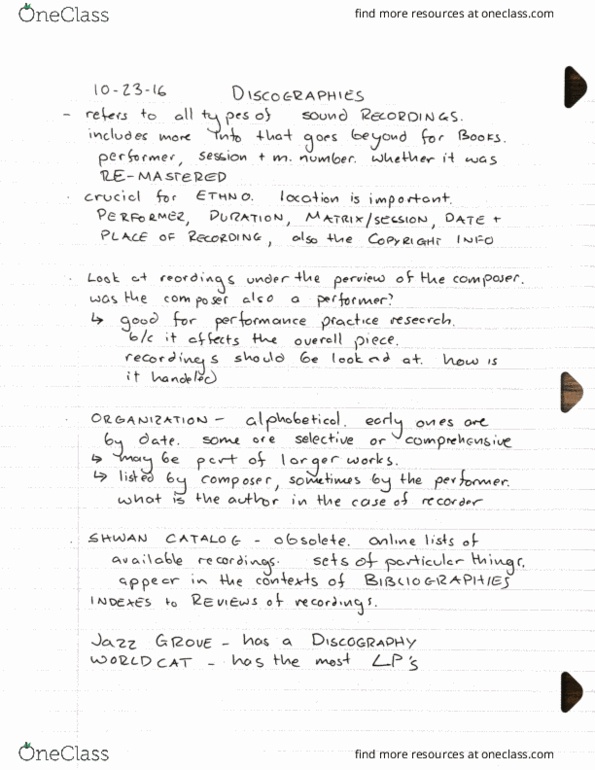 OneClass
find more resources at oneclass.com
10-23-16 DISCOGRAPHIES
- refers to all types of sound RECORDINGS.
includes more info that goes beyond for Books.
performer, session + m. number. whether it was
RE-MASTERED
· crucial for ETHNO. location is important.
PERFORMER, DURATION, MATRIX/SESSION, DATE +
PLACE OF RECORDING, also the COPYRIGHT INFO
· Look at reordings under the perview of the composer.
was the composer also a performer?
↳ good for performance practice research.
b/c it affects the overall piece.
recordings should be looknd at. how is
it handeled
· ORGANIZATION - alphabetical. early ones are
by date. some are selective or comprehensive
↳ may be part of larger works.
↳ listed by composer, sometimes by the performer.
what is the author in the case of recorder
· SHWAN CATALOG - obsolete. online lists of
available recordings. sets of particular things.
appear in the contexts of BIBLIOGRAPHIES
INDEXES to REVIEWS of recordings.
JAZZ GROVE - has a DISCOGRAPHY
WORLDCAT - has the most LP's
OneClass
find more resources at oneclass.com